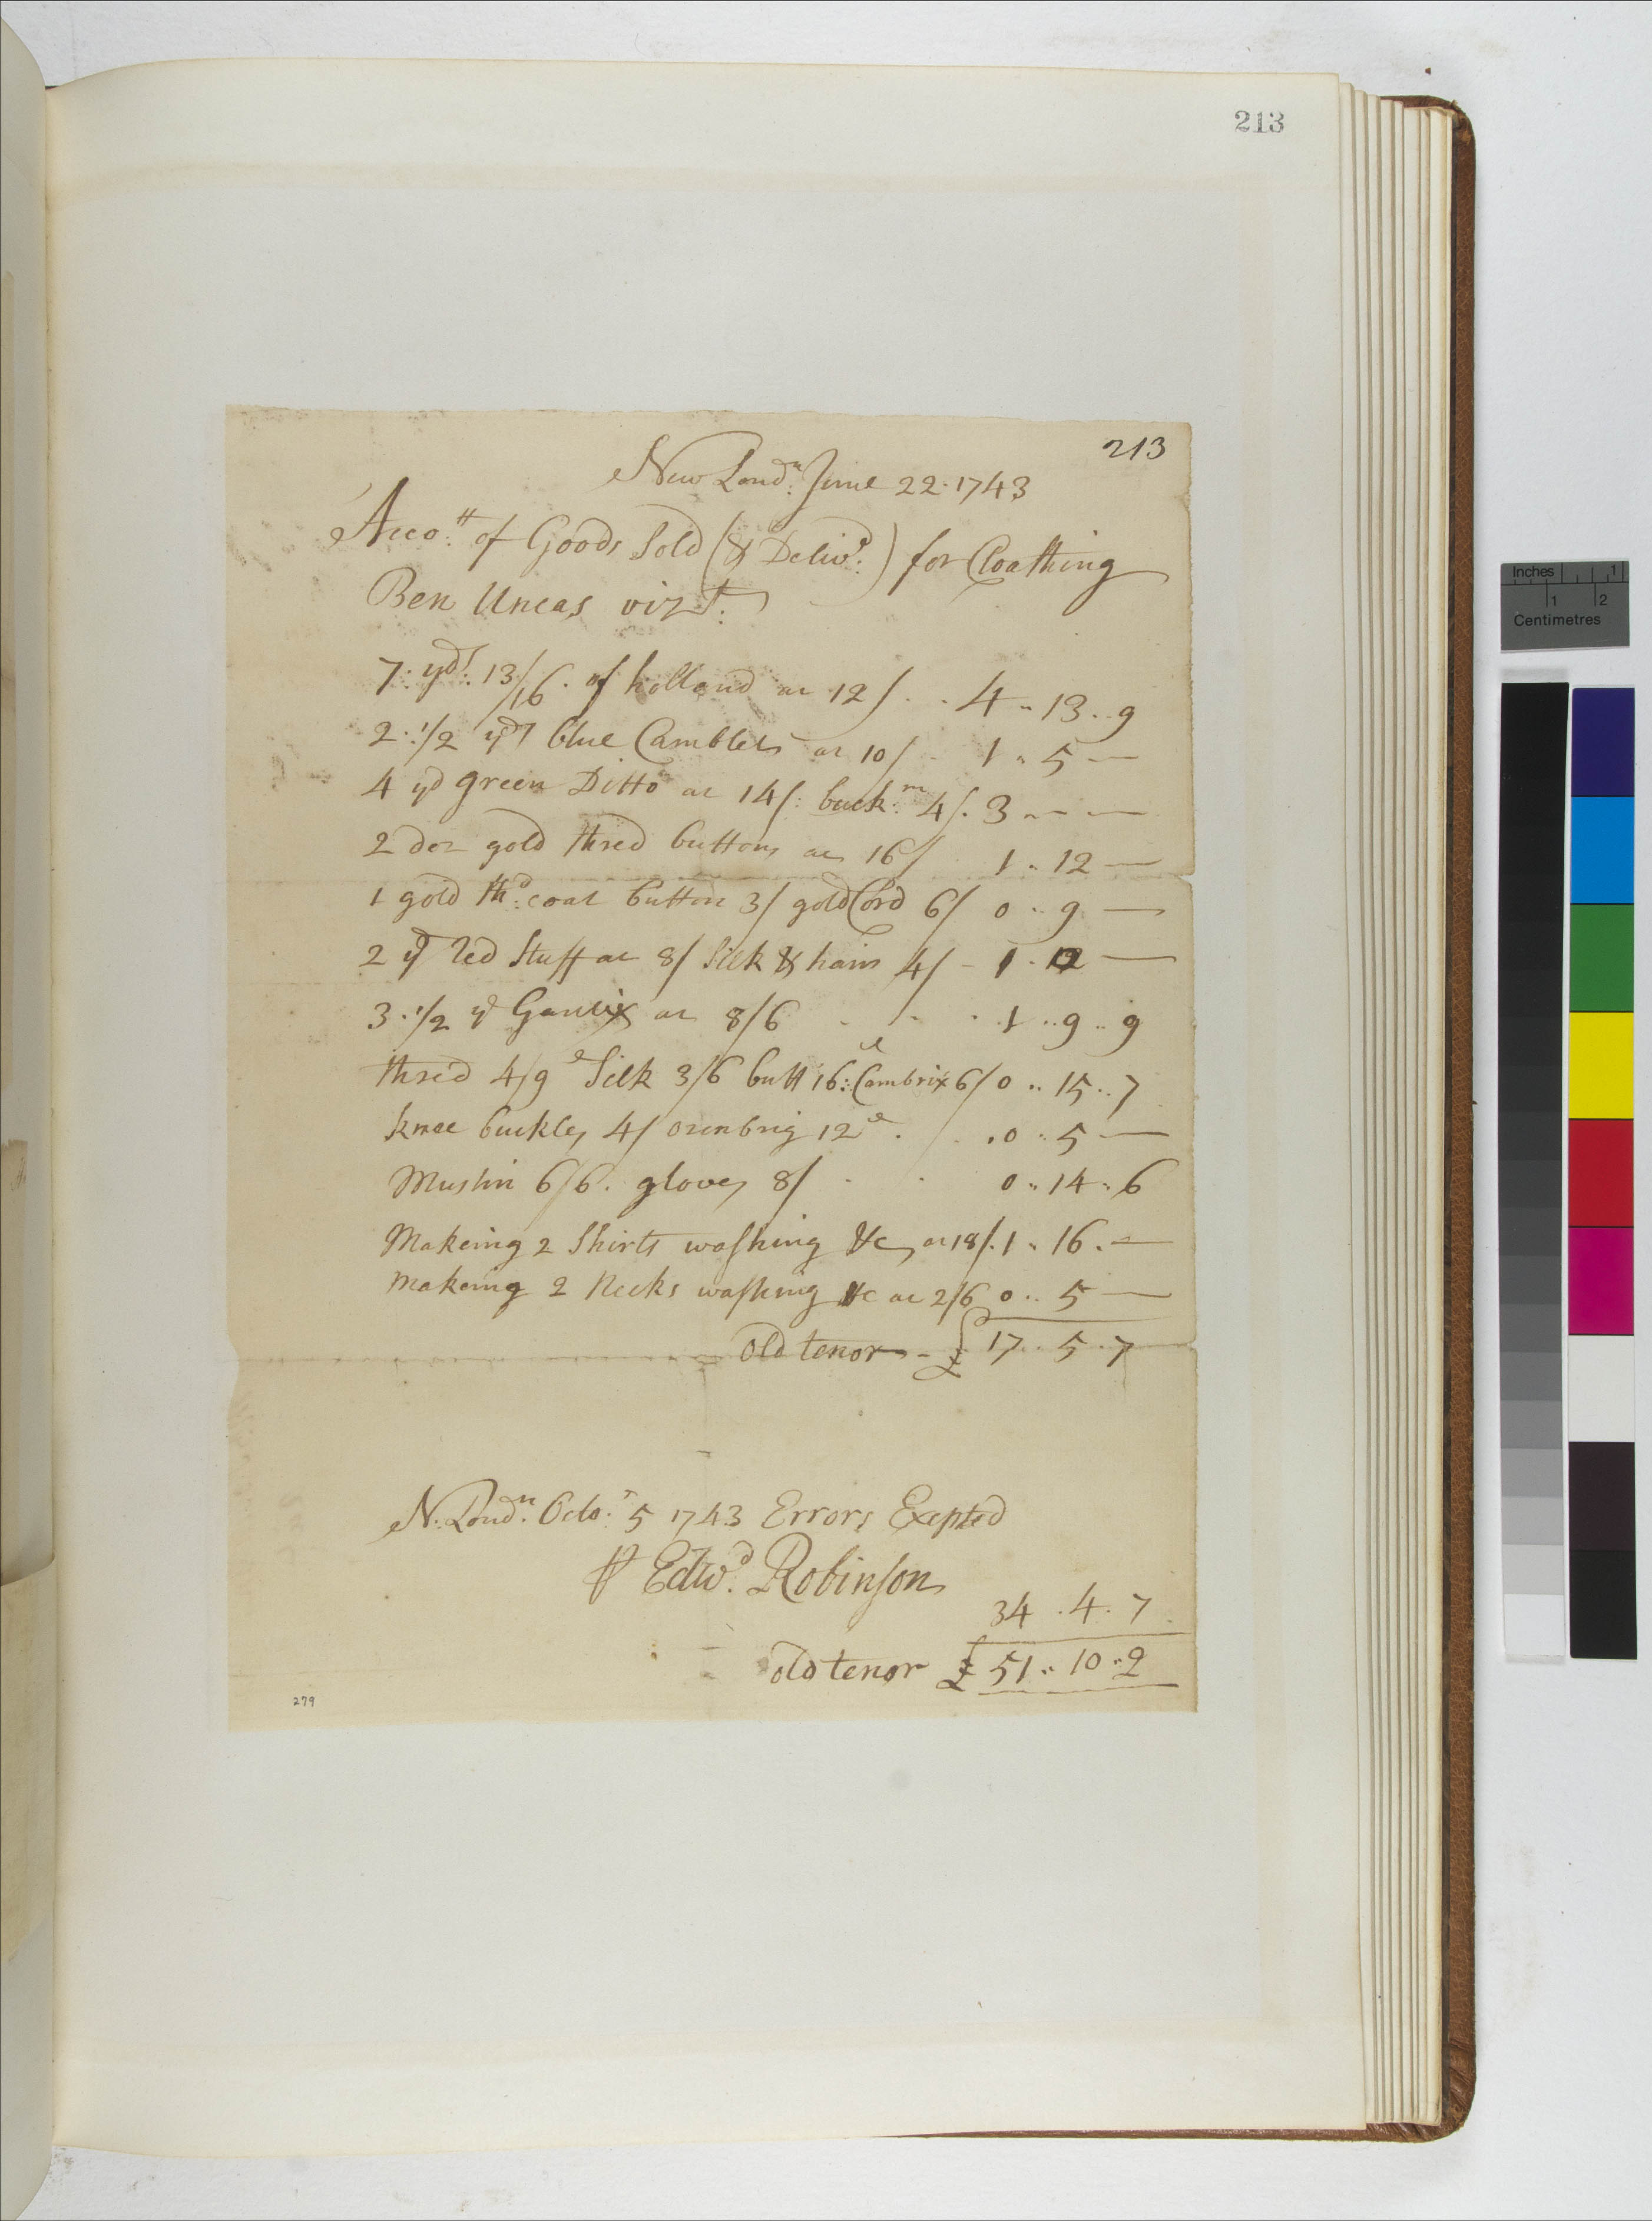 213
213
New Lond.n June 22. 1743
Acco.tt of Goods Sold (& Deliv.d) for Cloathing
Ben Uncas vizt.
7. yds. 13/16. of holland at 12/ . . 4 .. 13 .. 9
2. 1/2 yds blue Camblets at 10/ - 1 .. 5 —
4 yd green Ditto at 14/: buck.m 4/. 3 — —
2 doz gold thred buttons at 16/ 1 .. 12 —
1 gold th.d coat button 3/ gold Cord 6/ 0 .. 9 —
2 yd Red Stuff at 8/ Silk & hair 4/ - 1 . —
3. 1/2 yd Garlix at 8/6 . . . 1 .. 9 .. 9
thred 4/9 d Silk 3/6 butt 16:d Cambrix 6/ 0 .. 15 .. 7
knee buckles 4/ ozenbrig 12d . . . 0 .. 5 —
Muslin 6/6. gloves 8/ . . 0 .. 14 .. 6
Makeing 2 Shirts washing &c, at 18/. 1 .. 16. —
Makeing 2 Necks washing &c at 2/6 0 .. 5 —
old tenor - £ 17 .. 5 . 7
N. Lond.n Octo.r 5 1743 Errors Expted
P Edw.d Robinson
34 . 4 . 7
old tenor £ 51 .. 10 .. 2
279
Inches 1
1 2
Centimetres